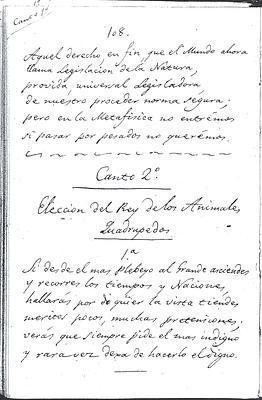 Canto 1º
108.
Aquel derecho en fin, que el Mundo ahora
llama Legislacion de la Natura,
provida universal Legisladora,
de nuestro proceder norma segura;
pero en la Metafisica no entremos
si pasar por pesados no queremos.
Canto 2º
Eleccion del Rey de los Animales
Quadrupedos
1ª
Si desde el mas Plebeyo al Grande asciendes
y recorres los tiempos y Naciones,
hallarás por do quier la vista tiendes
meritos pocos, muchas pretensiones;
verás que siempre pide el mas indigno
y rara vez dexa de hacerlo el digno.